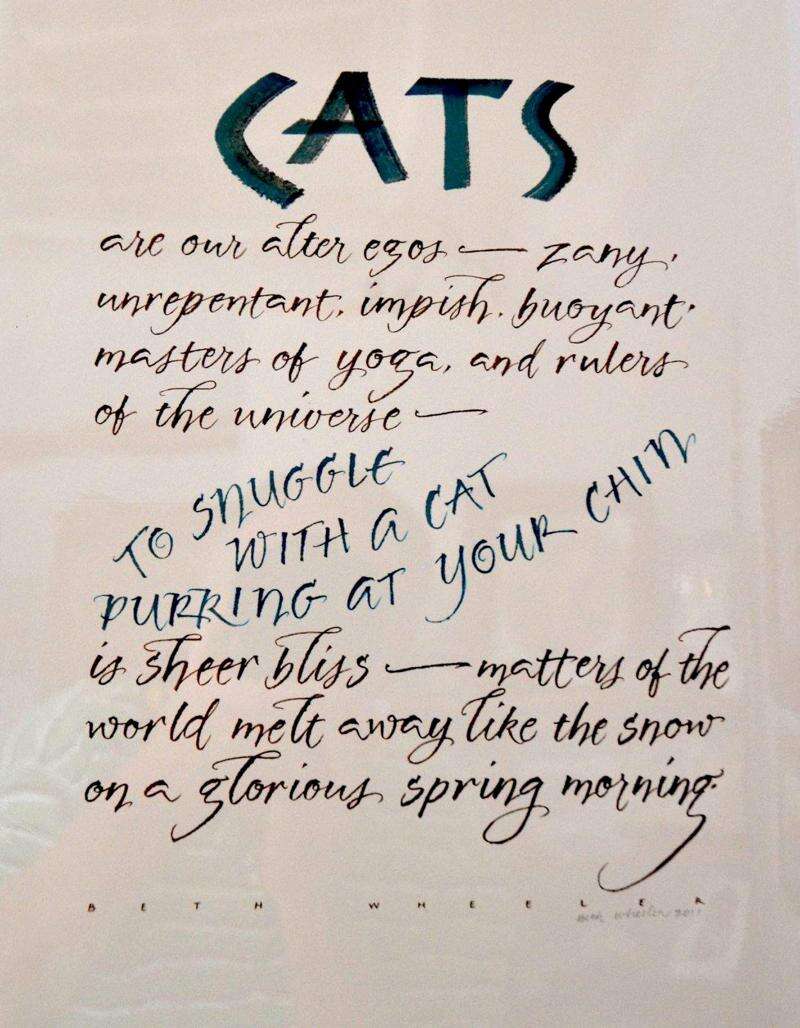 CATS
are our alter egos — zany,
unrepentant, impish, buoyant,
masters of yoga, and rulers
of the universe —
TO SNUGGLE
WITH A CAT
PURRING AT YOUR CHIN
is sheer bliss — matters of the
world melt away like the snow
on a glorious spring morning.
BETH WHEELER
Beth Wheeler 2011